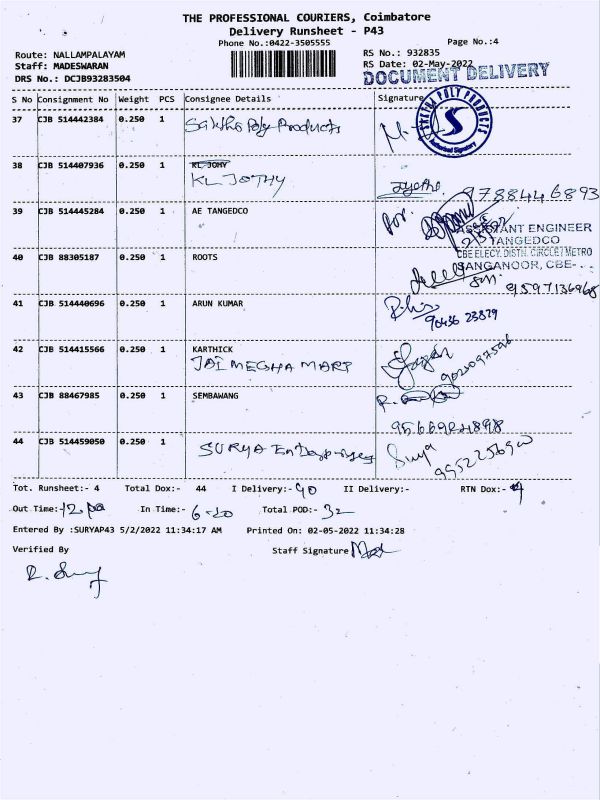 THE PROFESSIONAL COURIERS, Coimbatore
Delivery Runsheet - P43
Phone No.:0422-3505555
Page No.:4
Route: NALLAMPALAYAM
RS No.: 932835
Staff: MADESWARAN
RS Date: 02-May-2022
DRS No.: DCJB93283504
DOCUMENT DELIVERY
S No Consignment No Weight PCS Consignee Details Signature
37 CJB 514442384 0.250 1 Sakthi Poly Products
SAKTHI POLY PRODUCTS
S
Authorised Signatory
38 CJB 514407936 0.250 1 KL JOHY
KL JOTHY
9788446893
39 CJB 514445284 0.250 1 AE TANGEDCO
ASSISTANT ENGINEER
TANGEDCO
40 CJB 88305187 0.250 1 ROOTS
CBE ELECY. DISTN. CIRCLE / METRO
SANGANOOR, CBE-
9597136968
41 CJB 514440696 0.250 1 ARUN KUMAR
90436 23829
42 CJB 514415566 0.250 1 KARTHICK
JAI MEGHA MART
43 CJB 88467985 0.250 1 SEMBAWANG
44 CJB 514459050 0.250 1 SURYA Enterprises Surya
Tot. Runsheet:- 4 Total Dox:- 44 I Delivery:- 40 II Delivery:- RTN Dox:- 4
Out Time:- In Time:- Total POD:- 32
Entered By :SURYAP43 5/2/2022 11:34:17 AM Printed On: 02-05-2022 11:34:28
Verified By Staff Signature